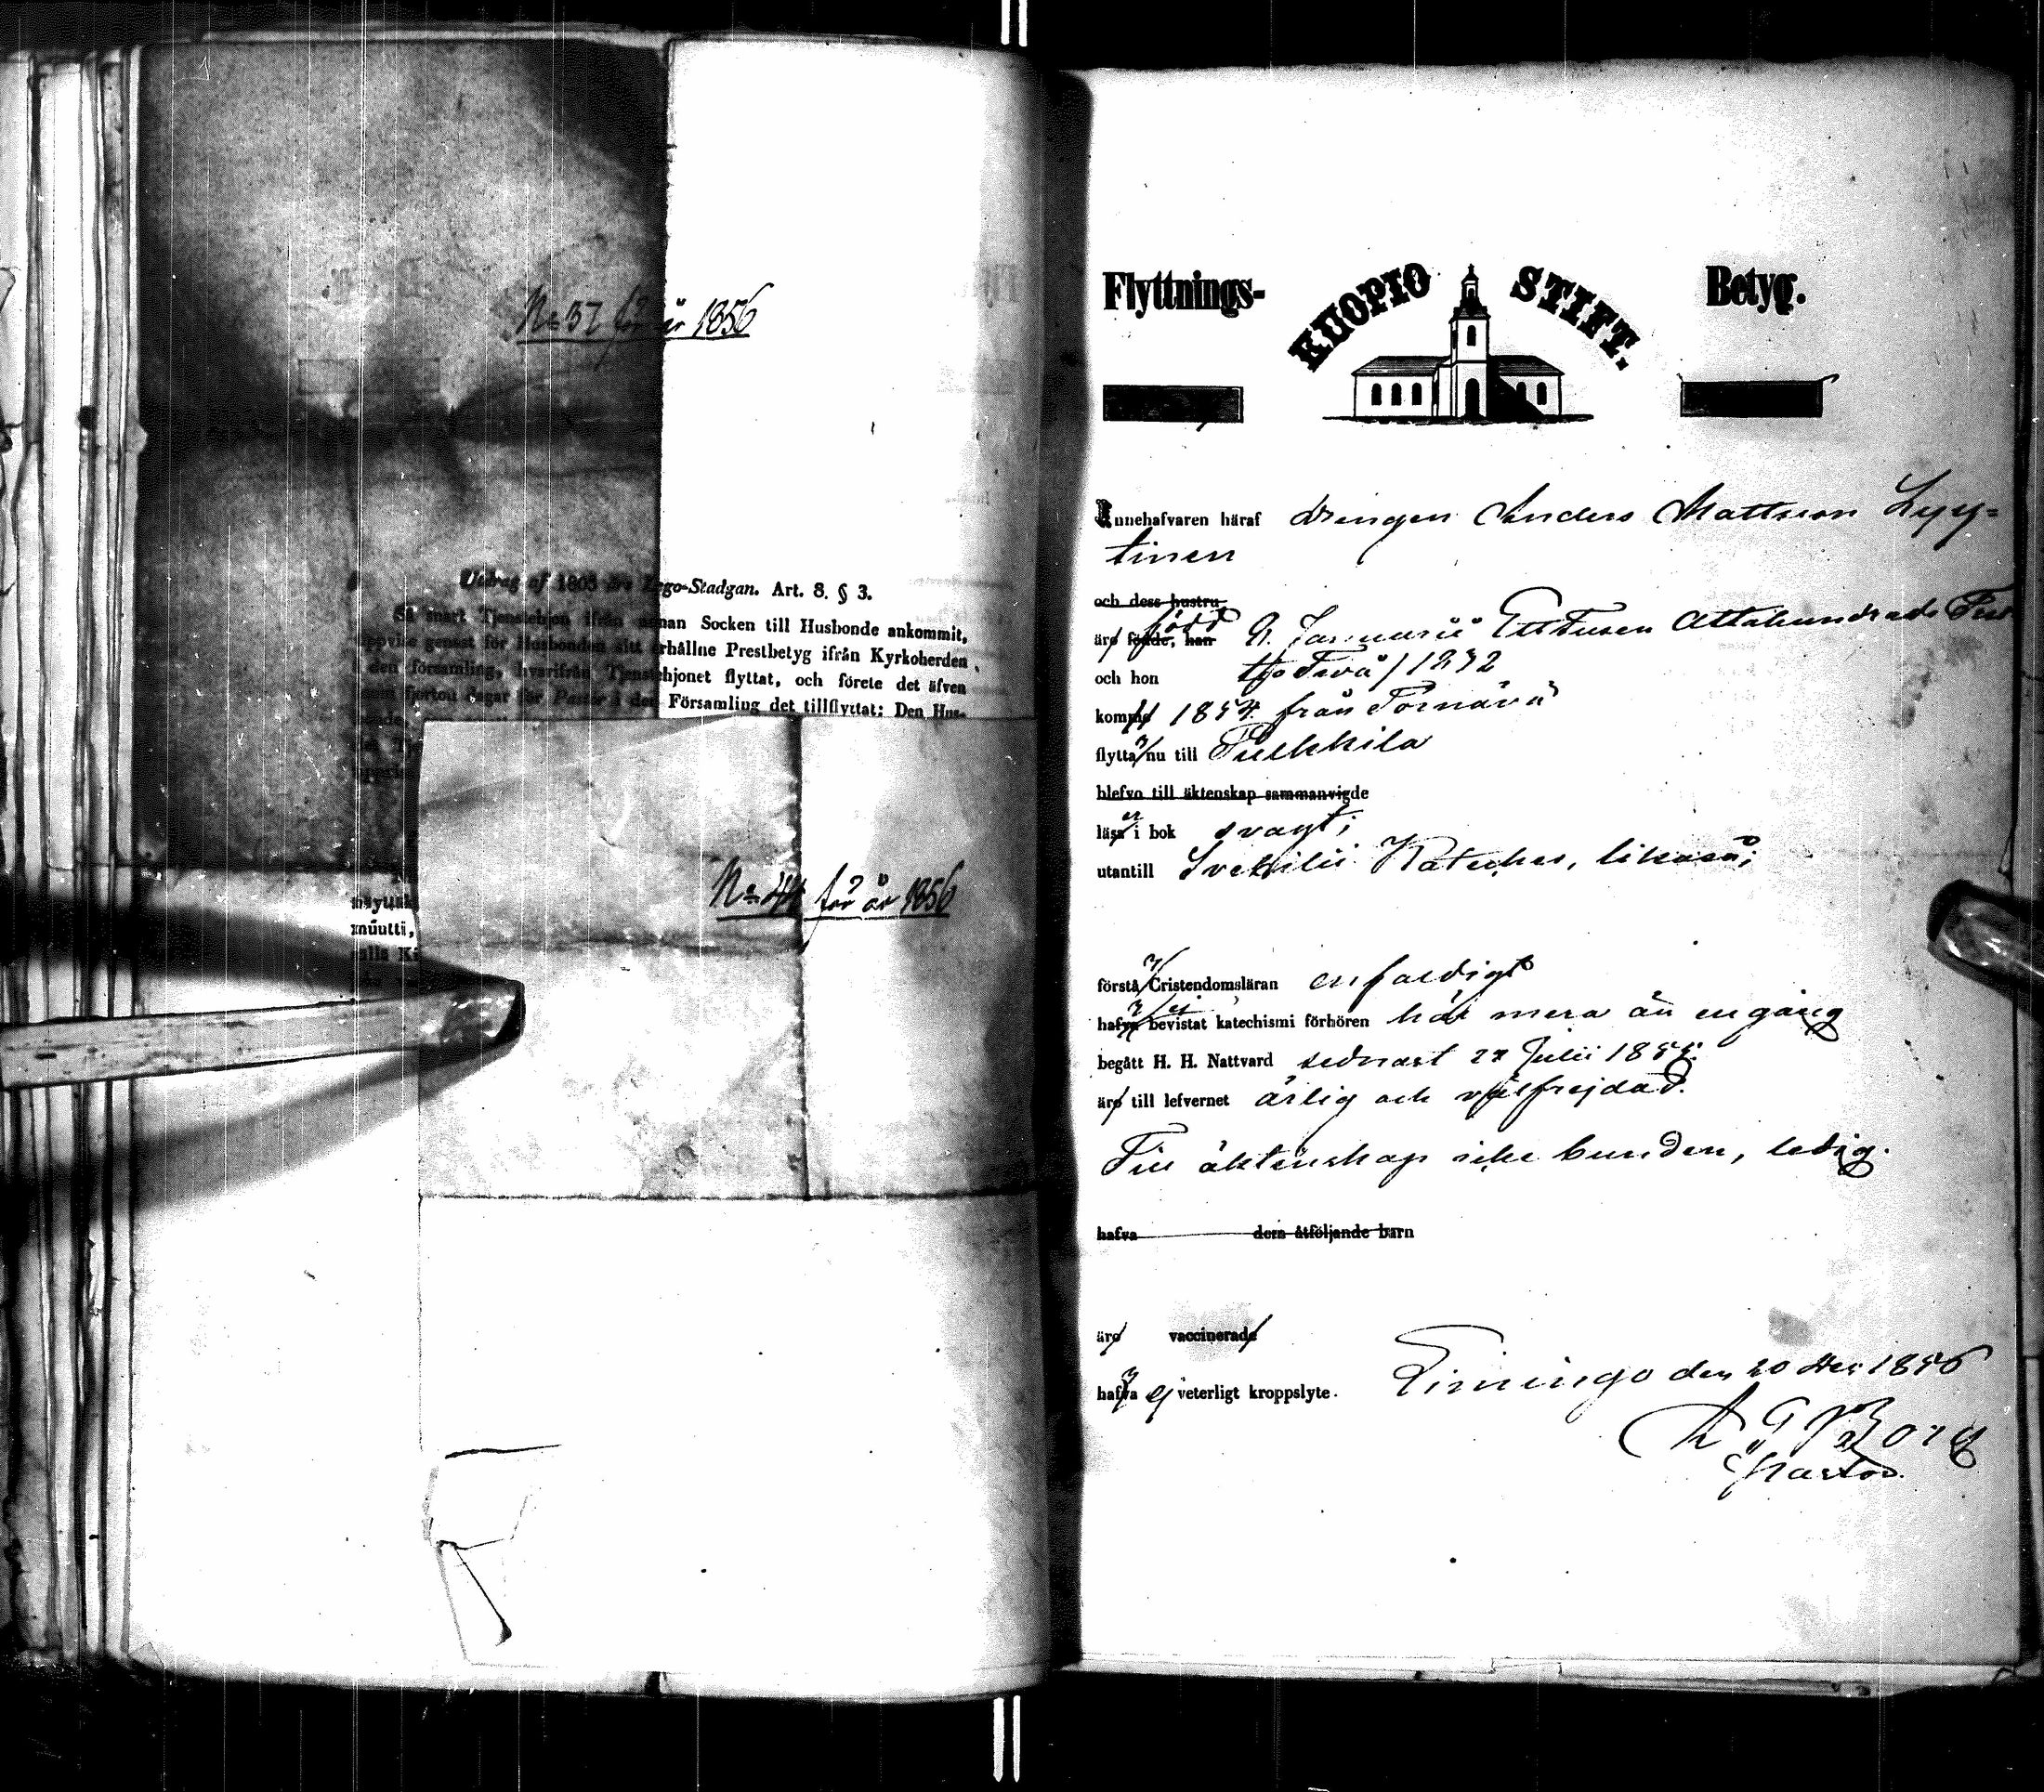 No 37 för år 1856
Utdrag af 1805 års Lego-Stadgan. Art. 8. § 3.
Så snart Tjenstehjon ifrån annan Socken till Husbonde ankommit,
uppvise genast för Husbonden sitt erhållne Prestbetyg ifrån Kyrkoherden
i den församling, hvarifrån Tjenstehjonet flyttat, och förete det äfven
inom fjorton dagar för Pastor i den Församling det tillflyttat: Den Hus-
muutti,
No 44 för år 1856
Flyttnings- KUOPIO STIFT. Betyg.
Innehafvaren häraf drengen Anders Mattsson Lyy-
tinen
och dess hustru
född
äro födde, han Januarii Ett Tusen Åttahundrade Tret
och hon tio Två / 1832
kommo 1854 från Tornävä
flytta nu till Pulkkila
blefvo till äktenskap sammanvigde
läsa i bok svagt;
utantill Svebilii Kateches, likaså;
förstå Cristendomsläran enfaldigt
hafva ej bevistat katechismi förhören här mera än en gång
begått H. H. Nattvard sednast 22 Julii 1855.
äro till lefvernet ärlig och välfrejdad.
Till äktenskap icke bunden, ledig.
hafva dem åtföljande barn
äro vaccinerade
hafva ej veterligt kroppslyte. Limingo den 20 1856
A G Borg
Pastor.